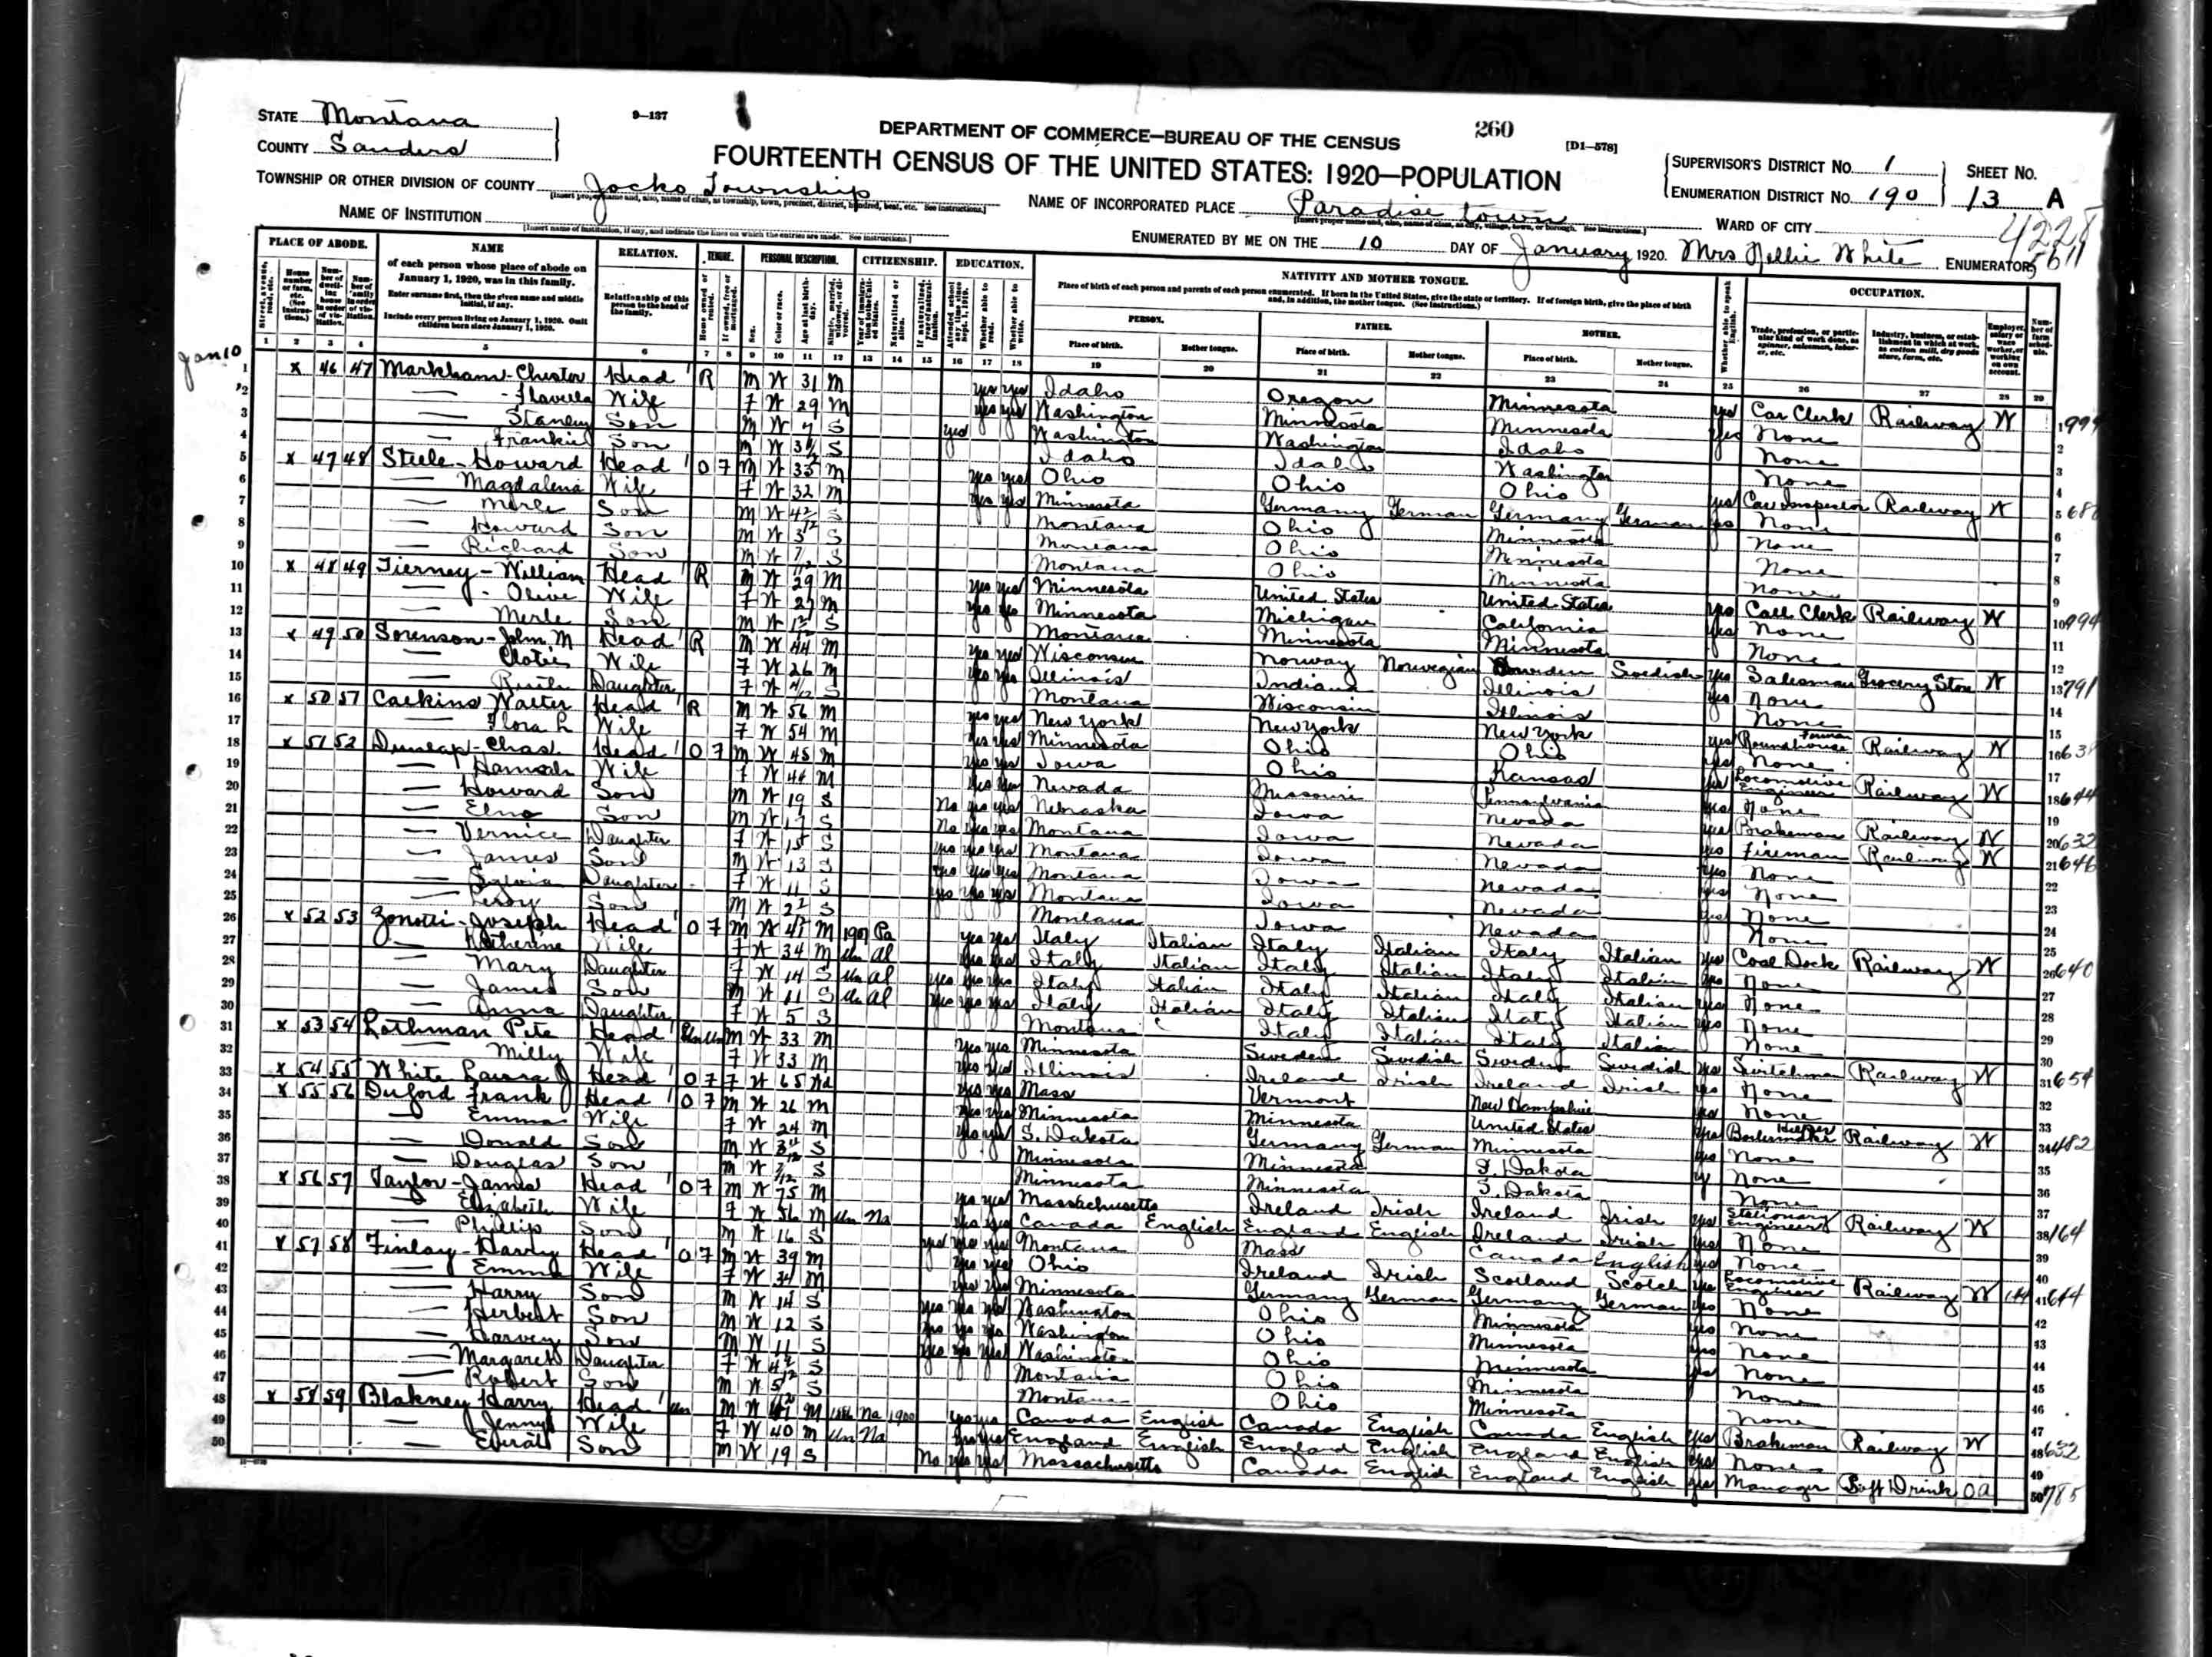 STATE Montana
9—137
COUNTY Sanders
DEPARTMENT OF COMMERCE—BUREAU OF THE CENSUS
260
[D1—578]
FOURTEENTH CENSUS OF THE UNITED STATES: 1920—POPULATION
SUPERVISOR'S DISTRICT No. 1
SHEET No.
ENUMERATION DISTRICT No. 190
13 A
TOWNSHIP OR OTHER DIVISION OF COUNTY Jocko Township
NAME OF INCORPORATED PLACE Paradise town
NAME OF INSTITUTION
WARD OF CITY
ENUMERATED BY ME ON THE 10 DAY OF January 1920. Mrs Nellie White ENUMERATOR
PLACE OF ABODE.
NAME
of each person whose place of abode on January 1, 1920, was in this family.
Enter surname first, then the given name and middle initial, if any.
Include every person living on January 1, 1920. Omit children born since January 1, 1920.
RELATION.
Relationship of this person to the head of the family.
TENURE.
PERSONAL DESCRIPTION.
CITIZENSHIP.
EDUCATION.
NATIVITY AND MOTHER TONGUE.
Place of birth of each person and parents of each person enumerated. If born in the United States, give the state or territory. If of foreign birth, give the place of birth and, in addition, the mother tongue. (See Instructions.)
PERSON.
FATHER.
MOTHER.
Place of birth. Mother tongue. Place of birth. Mother tongue. Place of birth. Mother tongue.
OCCUPATION.
Jan 10
1 x 46 47 Markham - Head R M W 31 M yes yes Idaho Oregon Minnesota yes Car Clerk Railway W
2 Wife F W 29 M yes yes Washington Minnesota Minnesota yes None
3 Stanley Son M W 7 S yes Washington Washington Idaho None
4 Son M W S Idaho Idaho Washington None
5 x 47 48 Steele - Howard Head O 7 M W 33 M yes yes Ohio Ohio Ohio yes Car Inspector Railway W
6 Magdalena Wife F W 32 M yes yes Minnesota Germany German Germany German yes None
7 Merle Son M W S Montana Ohio Minnesota None
8 Howard Son M W S Montana Ohio Minnesota None
9 Richard Son M W S Montana Ohio Minnesota None
10 x 48 49 Tierney - William Head R M W 29 M yes yes Minnesota United States United States yes Call Clerk Railway W
11 Olive Wife F W 27 M yes yes Minnesota Michigan California yes None
12 Merle Son M W S Montana Minnesota Minnesota None
13 x 49 50 Sorenson - John M Head R M W 44 M yes yes Wisconsin Norway Norwegian Sweden Swedish yes Salesman Grocery Store W
14 Wife F W 26 M yes yes Illinois Indiana Illinois yes None
15 Ruth Daughter F W S Montana Wisconsin Illinois None
16 x 50 51 Caekins Walter Head R M W 56 M yes yes New York New York New York yes Roundhouse Foreman Railway W
17 Flora L Wife F W 54 M yes yes Minnesota Ohio Ohio yes None
18 x 51 52 Dunlap - Chas. Head O 7 M W 45 M yes yes Iowa Ohio Kansas yes Locomotive Engineer Railway W
19 Hannah Wife F W 44 M yes yes Nevada Missouri Pennsylvania yes None
20 Howard Son M W 19 S No yes yes Nebraska Iowa Nevada yes Brakeman Railway W
21 Son M W 17 S No yes yes Montana Iowa Nevada yes Fireman Railway W
22 Vernice Daughter F W 15 S yes yes yes Montana Iowa Nevada yes None
23 James Son M W 13 S yes yes yes Montana Iowa Nevada yes None
24 Sylvia Daughter F W 11 S yes yes yes Montana Iowa Nevada yes None
25 Leroy Son M W S Montana Iowa Nevada None
26 x 52 53 Zonotti - Joseph Head O 7 M W M Pa yes yes Italy Italian Italy Italian Italy Italian yes Coal Dock Railway W
27 Katherine Wife F W 34 M Un Al yes yes Italy Italian Italy Italian Italy Italian yes None
28 Mary Daughter F W 14 S Un Al yes yes yes Italy Italian Italy Italian Italy Italian yes None
29 James Son M W 11 S Un Al yes yes yes Italy Italian Italy Italian Italy Italian yes None
30 Anna Daughter F W 5 S Montana Italy Italian Italy Italian None
31 x 53 54 Lothman Pete Head Un Un M W 33 M yes yes Minnesota Sweden Swedish Sweden Swedish yes Switchman Railway W
32 Milly Wife F W 33 M yes yes Illinois Ireland Irish Ireland Irish yes None
33 x 54 55 White Laura J Head O 7 F W 65 Wd yes yes Mass Vermont New Hampshire yes None
34 x 55 56 Duford Frank J Head O 7 M W 26 M yes yes Minnesota Minnesota United States yes Boilermaker Helper Railway W
35 Emma Wife F W 24 M yes yes S. Dakota Germany German Minnesota yes None
36 Donald Son M W S Minnesota Minnesota S. Dakota None
37 Douglas Son M W S Minnesota Minnesota S. Dakota None
38 x 56 57 Taylor - James Head O 7 M W 75 M yes yes Massachusetts Ireland Irish Ireland Irish yes Stationary Engineer Railway W
39 Elizabeth Wife F W 56 M Un Na yes yes Canada English England English Ireland Irish yes None
40 Phillip Son M W 16 S yes yes yes Montana Mass Canada English yes None
41 x 57 58 Finlay - Harry Head O 7 M W 39 M yes yes Ohio Ireland Irish Scotland Scotch yes Locomotive Engineer Railway W
42 Emma Wife F W 34 M yes yes Minnesota Germany German Germany German yes None
43 Harry Son M W 14 S yes yes yes Washington Ohio Minnesota yes None
44 Herbert Son M W 12 S yes yes yes Washington Ohio Minnesota yes None
45 Harvey Son M W 11 S yes yes yes Washington Ohio Minnesota yes None
46 Margaret Daughter F W S Montana Ohio Minnesota None
47 Robert Son M W S Montana Ohio Minnesota None
48 x 58 59 Blakney Harry Head Un M W M 1886 Na 1900 yes yes Canada English Canada English Canada English yes Brakeman Railway W
49 Jenny Wife F W 40 M Un Na yes yes England English England English England English yes None
50 Son M W 19 S No yes yes Massachusetts Canada English England English yes Manager Soft Drink OA